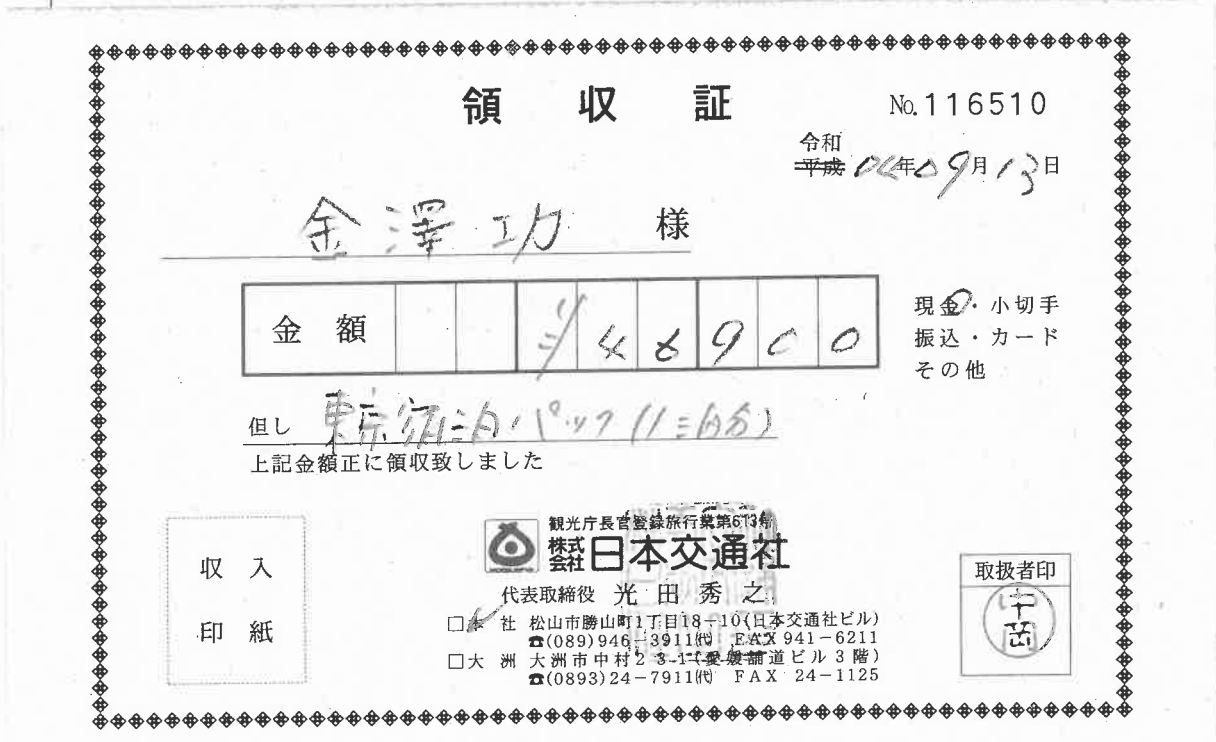 領 収 証
No.116510
令和
平成 04年09月13日
金澤 功 様
金 額 ¥46900
現金・小切手
振込・カード
その他
但し 東京宿泊パック(1泊分)
上記金額正に領収致しました
収 入
印 紙
観光庁長官登録旅行業第613号
株式会社 日本交通社
代表取締役 光 田 秀 之
□本 社 松山市勝山町1丁目18-10(日本交通社ビル)
☎(089)946-3911㈹ FAX 941-6211
□大 洲 大洲市中村23-1(愛媛舗道ビル3階)
☎(0893)24-7911㈹ FAX 24-1125
取扱者印